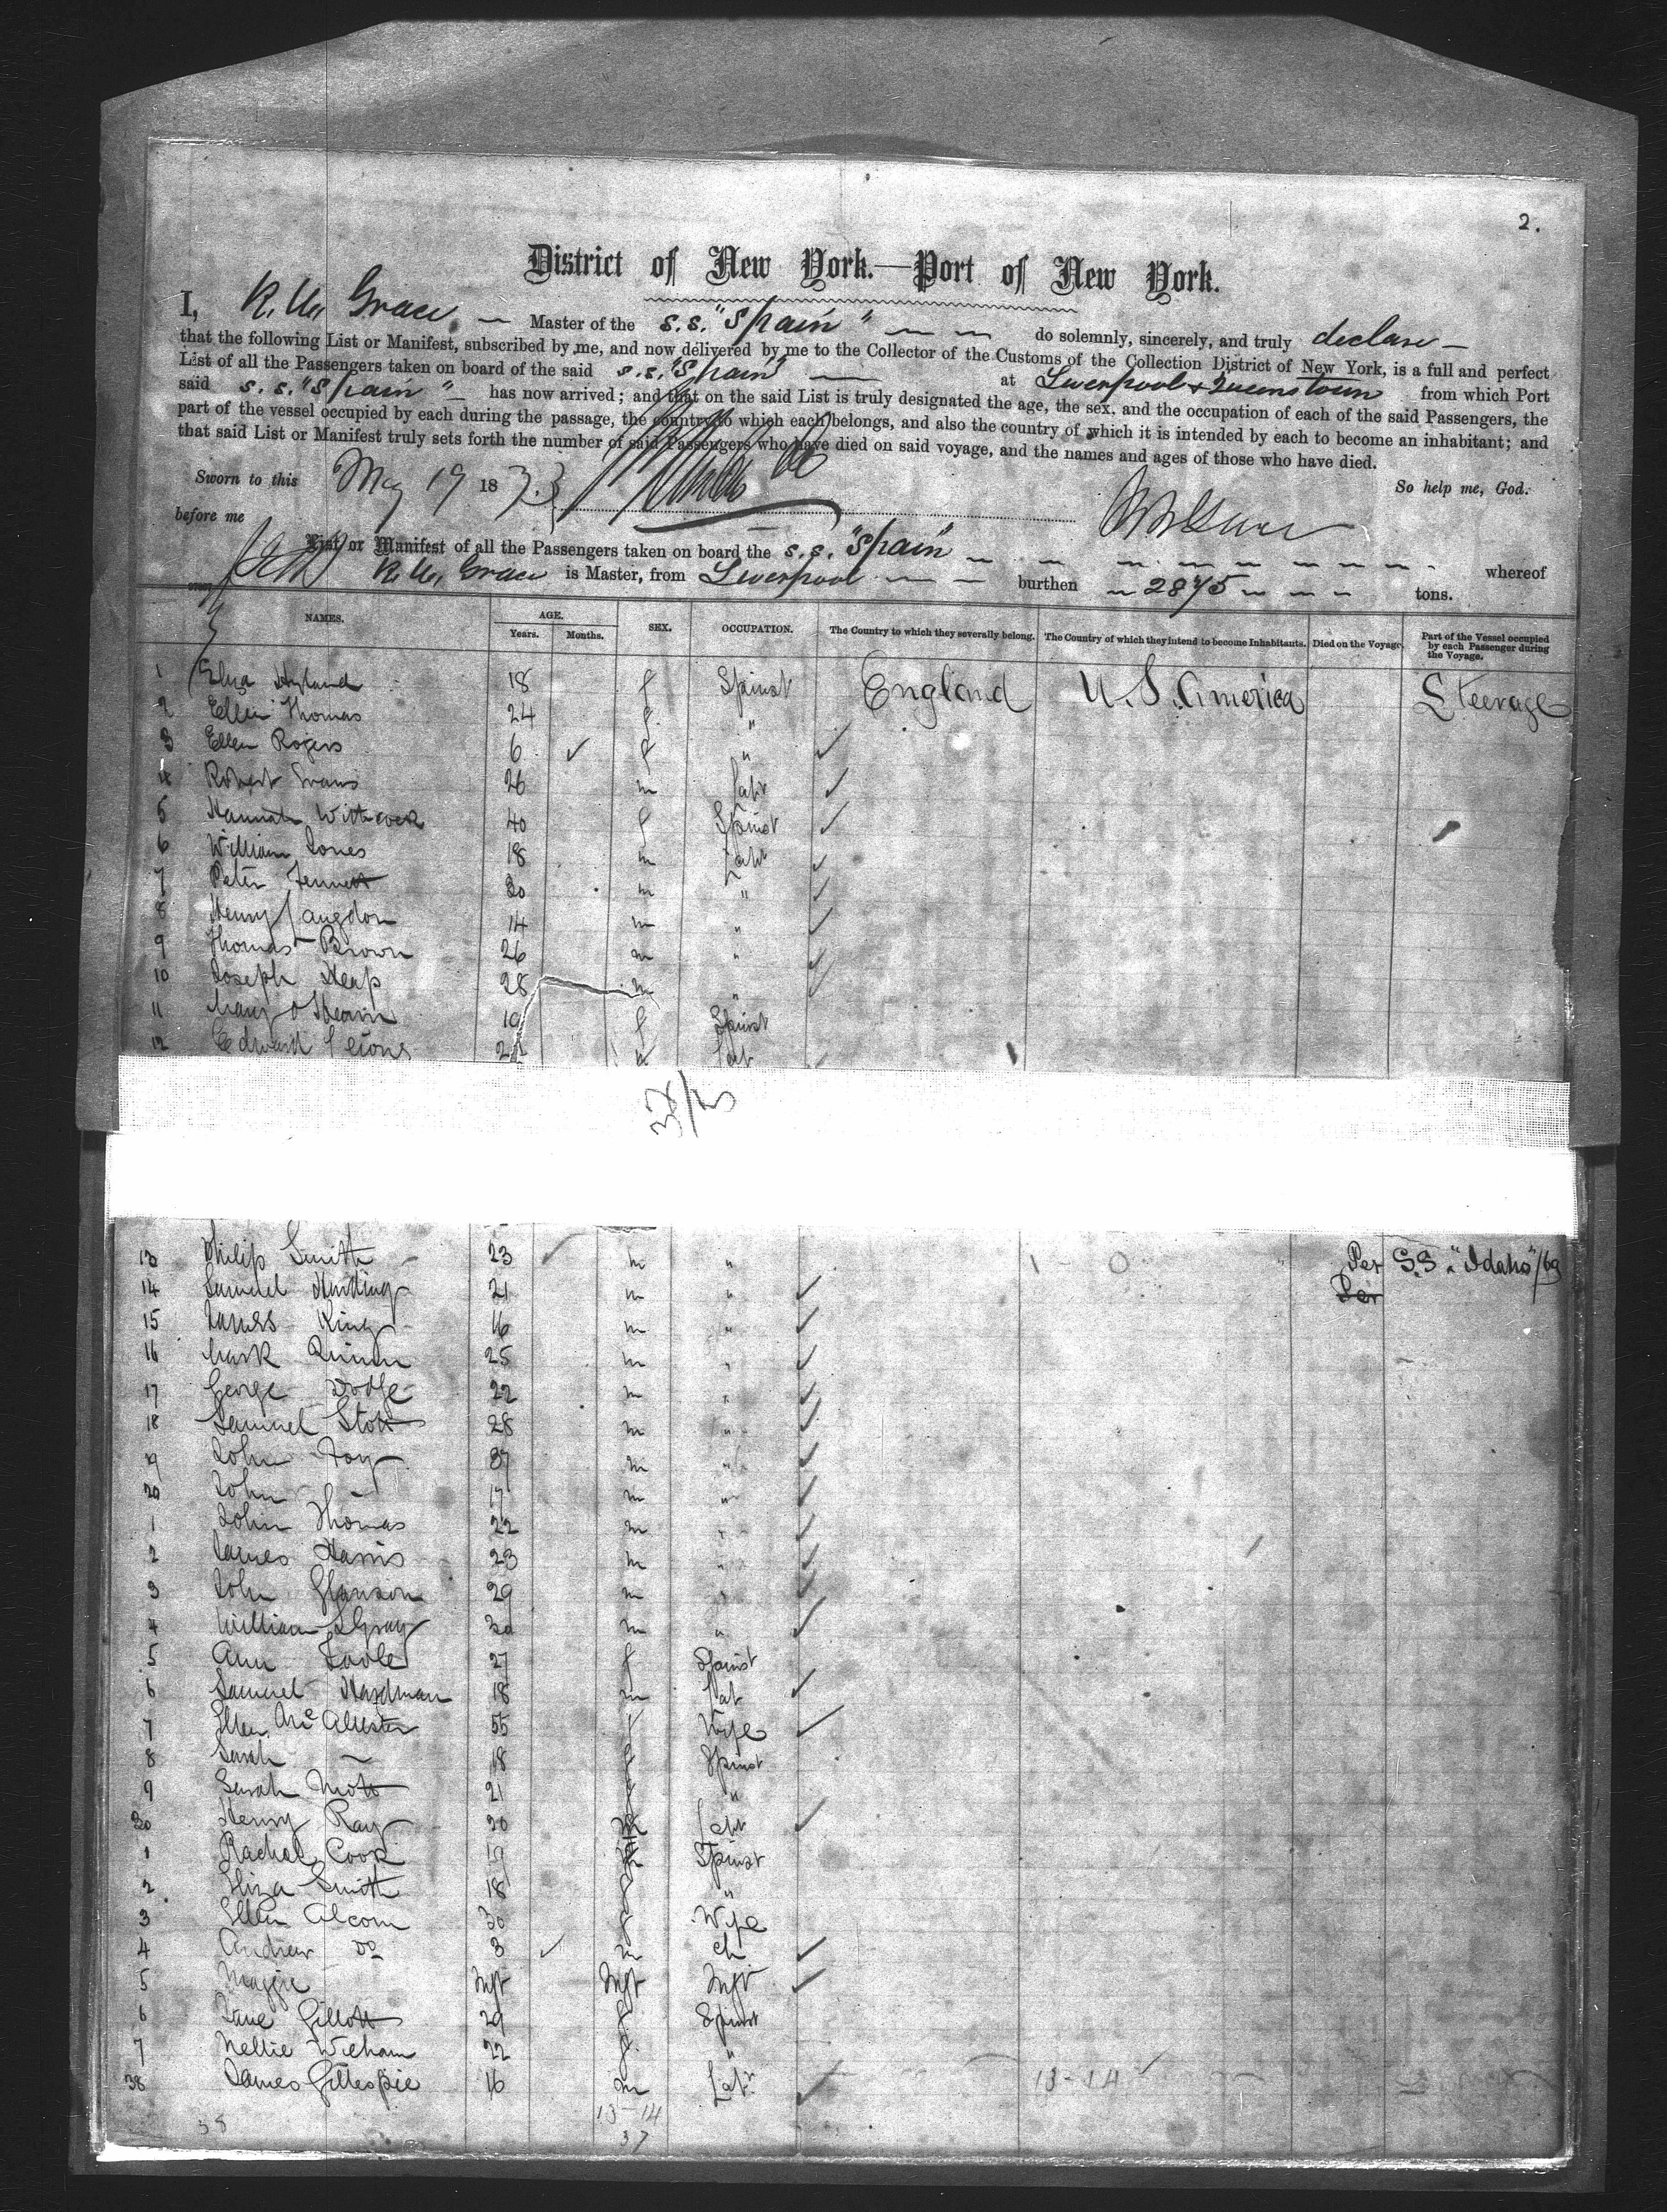 2.
District of New York.—Port of New York.
I, R. W. Grace — Master of the s.s. "Spain" — — do solemnly, sincerely, and truly declare —
that the following List or Manifest, subscribed by me, and now delivered by me to the Collector of the Customs of the Collection District of New York, is a full and perfect
List of all the Passengers taken on board of the said s.s. "Spain" — at Liverpool & Queenstown from which Port
said s.s. "Spain" — has now arrived; and that on the said List is truly designated the age, the sex, and the occupation of each of the said Passengers, the
part of the vessel occupied by each during the passage, the country to which each belongs, and also the country of which it is intended by each to become an inhabitant; and
that said List or Manifest truly sets forth the number of said Passengers who have died on said voyage, and the names and ages of those who have died.
Sworn to this May 19 1873 So help me, God.
before me
List or Manifest of all the Passengers taken on board the s.s. "Spain" whereof
R. W. Grace is Master, from Liverpool — — burthen 2875 tons.
NAMES. AGE. Years. Months. SEX. OCCUPATION. The Country to which they severally belong. The Country of which they intend to become Inhabitants. Died on the Voyage. Part of the Vessel occupied by each Passenger during the Voyage.
1 Eliza Hyland 18 f Spinst England U.S. America Steerage
2 Ellen Thomas 24 f "
3 Ellen Rogers 6 ✓ f " ✓
4 Robert Evans 26 m Labr ✓
5 Hannah 40 f Spinst ✓
6 William Jones 18 m Labr ✓
7 Peter Fennett 30 m " ✓
8 Henry Langdon 14 m " ✓
9 Thomas Brown 26 m " ✓
10 Joseph Heap 28 m " ✓
11 Mary O'Hearn 19 f Spinst
12 Edward Lyons m Lab
13 Philip Smith 23 ✓ m " Per S.S. "Idaho"/69
14 Samuel Harding 21 m " ✓ Per
15 James King 16 m " ✓
16 Mark Quinn 25 m " ✓
17 George Dodge 22 m " ✓
18 Samuel Stott 28 m " ✓
19 John Foy 37 m " ✓
20 John — 17 m " ✓
1 John Thomas 22 m " ✓
2 James Harris 23 m " ✓
3 John 29 m " ✓
4 William Gray 30 m " ✓
5 Ann 27 f Spinst
6 Samuel Hardman 18 m Lab ✓
7 Ellen McAlister 55 f Wife ✓
8 Sarah — 18 f Spinst
9 Sarah Mott 21 f "
30 Henry Ray 20 m Labr ✓
1 Rachel Cook 19 f Spinst
2 Eliza Smith 18 f "
3 Ellen Alcorn 30 f Wife
4 Andrew do 3 ✓ m ch ✓
5 Maggie Inft Inft Inft ✓
6 Jane Gillott 29 f Spinst
7 Nellie Wickam 22 f "
38 James Gillespie 16 m Labr ✓ 13-14
38 13-14
37